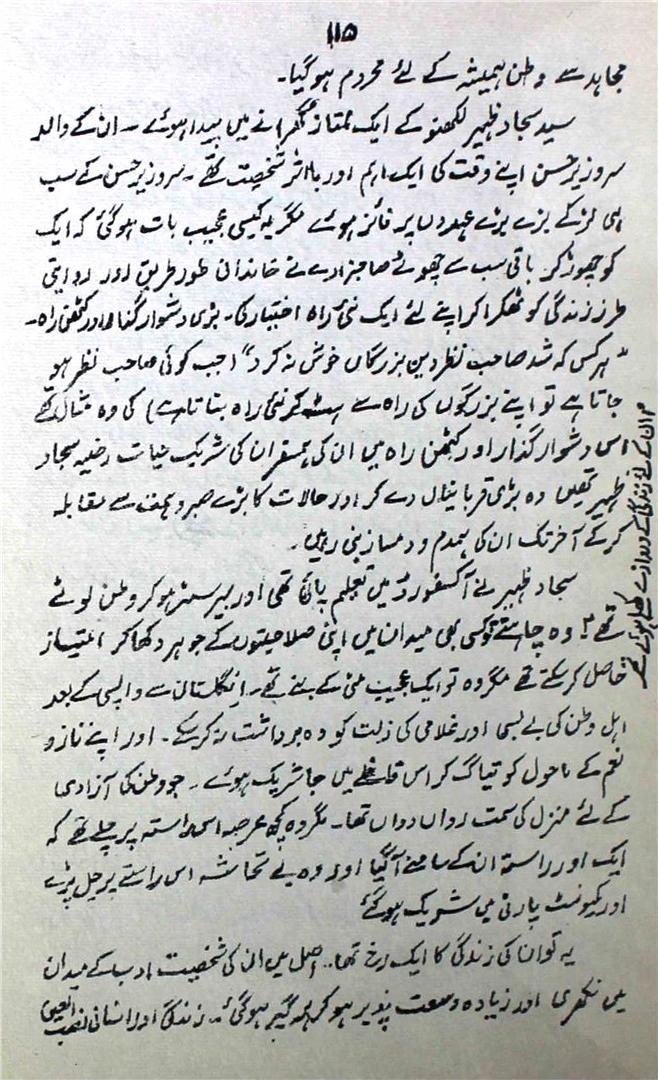 ۱۱۵
مجاہد سے وطن ہمیشہ کے لئے محروم ہوگیا۔
سید سجاد ظہیر لکھنو کے ایک ممتاز گھرانے میں پیدا ہوئے۔ ان کے والد
سر وزیر حسن اپنے وقت کی ایک اہم اور بااثر شخصیت تھے۔ سر وزیر حسن کے سب
ہی لڑکے بڑے بڑے عہدوں پر فائز ہوئے مگر یہ کیسی عجیب بات ہوگئی کہ ایک
کو چھوڑ کر باقی سب سے چھوٹے صاحبزادے نے خاندان طور طریق اور روایتی
طرز زندگی کو ٹھکرا کر اپنے لئے ایک نئی راہ اختیار کی۔ بڑی دشوار گذار اور کٹھن راہ۔
"ہر کس کہ شد صاحب نظر دین بزرگاں خوش نہ کرد" (جب کوئی صاحب نظر ہو
جاتا ہے تو اپنے بزرگوں کی راہ سے ہٹ کر نئی راہ بناتا ہے) کی وہ مثال تھے
اس دشوار گذار اور کٹھن راہ میں ان کی ہمسفر ان کی شریک حیات رضیہ سجاد
ظہیر تھیں وہ بڑی قربانیاں دے کر اور حالات کا بڑے صبر و ہمت سے مقابلہ
کرکے آخر تک ان کی ہمدم و دمساز بنی رہیں۔
سجاد ظہیر نے آکسفورڈ میں تعلیم پائی تھی اور بیرسٹر ہو کر وطن لوٹے
تھے ۳ وہ چاہتے تو کسی بھی میدان میں اپنی صلاحیتوں کے جوہر دکھا کر امتیاز
حاصل کر سکتے تھے مگر وہ تو ایک عجیب مٹی کے بنے تھے۔ انگلستان سے واپسی کے بعد
اہل وطن کی بے بسی اور غلامی کی ذلت کو وہ برداشت نہ کر سکے۔ اور اپنے ناز و
نعم کے ماحول کو تیاگ کر اس قافلے میں جا شریک ہوئے۔ جو وطن کی آزادی
کے لئے منزل کی سمت رواں دواں تھا۔ مگر وہ کچھ عرصہ اسی راستہ پر چلے تھے کہ
ایک اور راستہ ان کے سامنے آگیا اور وہ بے تحاشہ اس راستے پر چل پڑے
اور کمیونسٹ پارٹی میں شریک ہوگئے
یہ تو ان کی زندگی کا ایک رخ تھا۔ اصل میں ان کی شخصیت ادب کے میدان
میں نکھری اور زیادہ وسعت پذیر ہو کر ہمہ گیر ہوگئی۔ زندگی اور انسانی نصب العین
۳ ان کے لئے زندگی کے دروازے کھلے ہوئے تھے